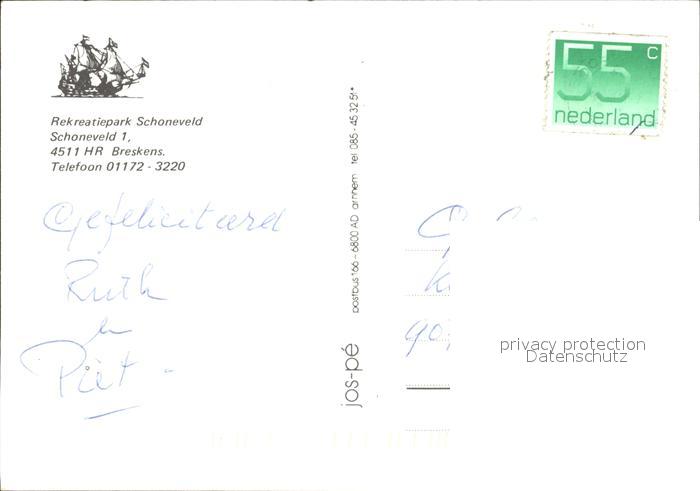 Rekreatiepark Schoneveld
Schoneveld 1,
4511 HR Breskens.
Telefoon 01172 - 3220
Gefeliciteerd
Ruth
Piet -
jos-pé postbus 166 - 6800 AD arnhem tel 085 - 45 32 51*
55 c
nederland
privacy protection
Datenschutz